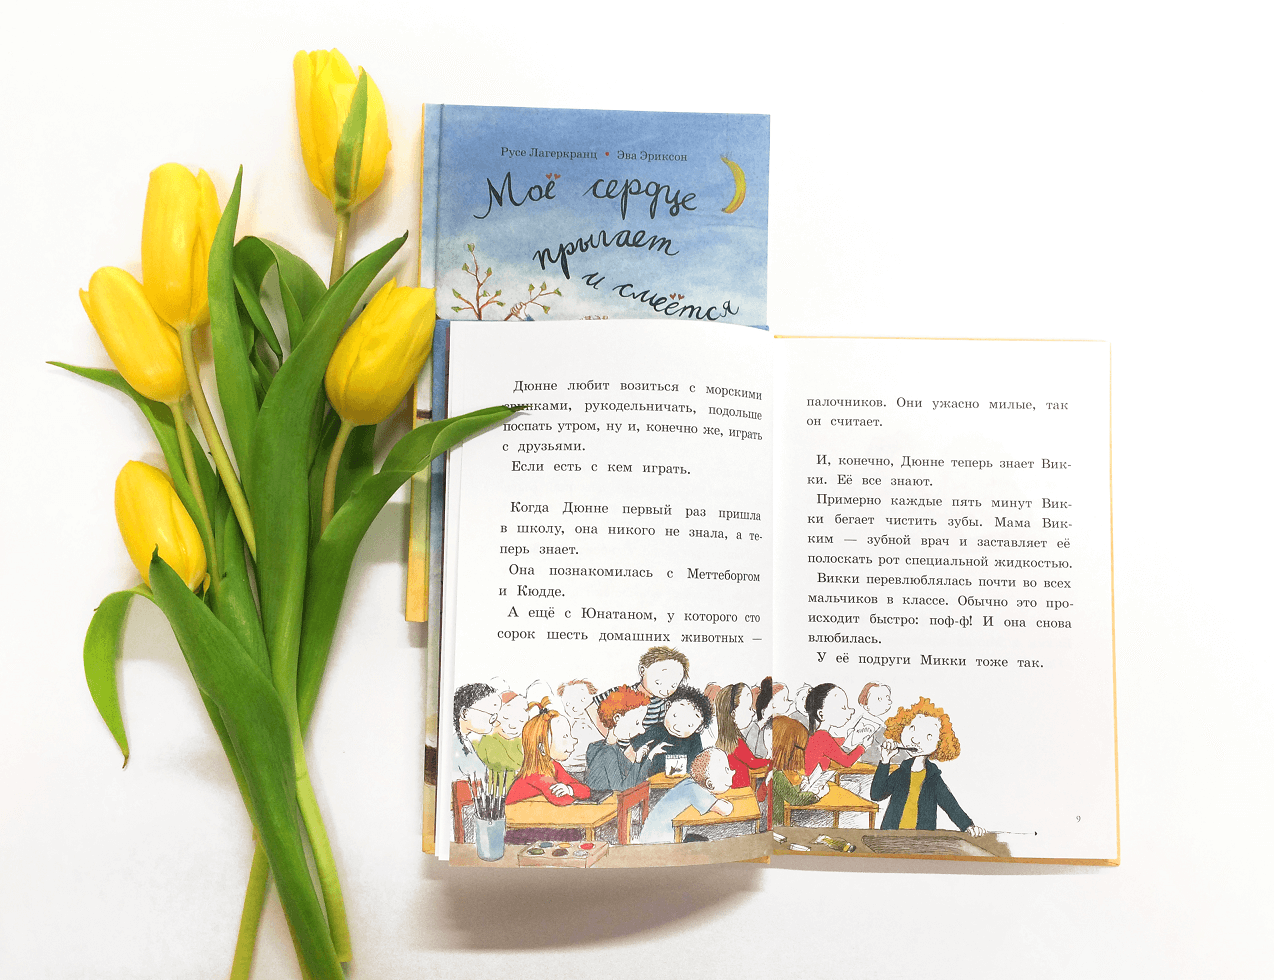 Русе Лагеркранц • Эва Эриксон
Моё сердце
прыгает
и смеётся
Дюнне любит возиться с морскими
свинками, рукодельничать, подольше
поспать утром, ну и, конечно же, играть
с друзьями.
Если есть с кем играть.
Когда Дюнне первый раз пришла
в школу, она никого не знала, а те-
перь знает.
Она познакомилась с Меттеборгом
и Кюдде.
А ещё с Юнатаном, у которого сто
сорок шесть домашних животных —
палочников. Они ужасно милые, так
он считает.
И, конечно, Дюнне теперь знает Вик-
ки. Её все знают.
Примерно каждые пять минут Вик-
ки бегает чистить зубы. Мама Вик-
ким — зубной врач и заставляет её
полоскать рот специальной жидкостью.
Викки перевлюблялась почти во всех
мальчиков в классе. Обычно это про-
исходит быстро: поф-ф! И она снова
влюбилась.
У её подруги Микки тоже так.
9